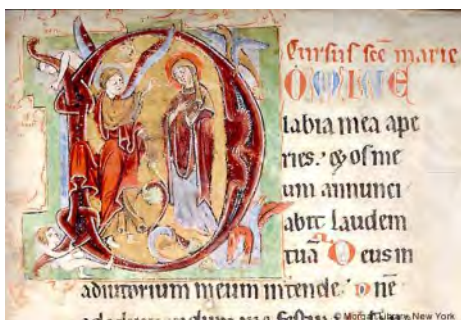 Cursus sce marie
DOMINE
labia mea ape
ries. & os me
um annunci
abit laudem
tuā Deus in
adiutorium meum intende. Dne
Morgan Library, New York